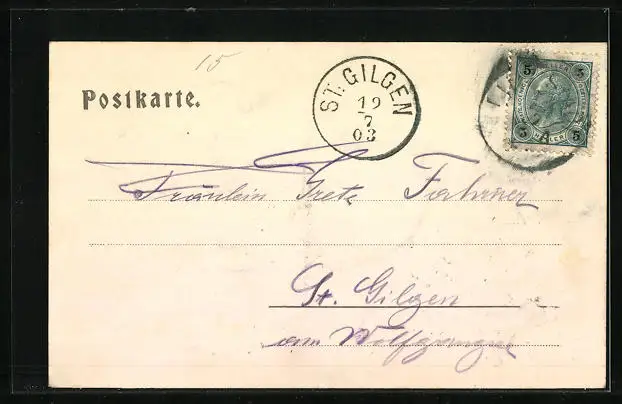 15
Postkarte.
ST. GILGEN
19
7
03
5 5
5 HELLER 5
Fräulein Grete Fahrner
St. Gilgen
am Wolfgangsee